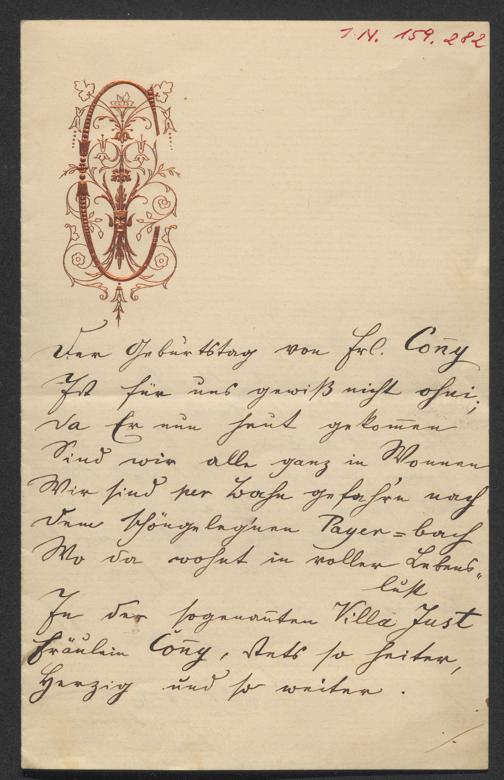 J.N. 159.282
Der Geburtstag von Frl. Coñy
Ist für uns gewiß nicht ohni;
Da Er nun heut gekom̄en
Sind wir alle ganz in Wonnen
Wir sind per Bahn gefahr'n nach
Dem schöngeleg'nen Payer=bach
Wo da wohnt in voller Lebens"
lust
In der sogenan̄ten Villa Just
Fräulein Coñy, stets so heiter,
Herzig und so weiter.